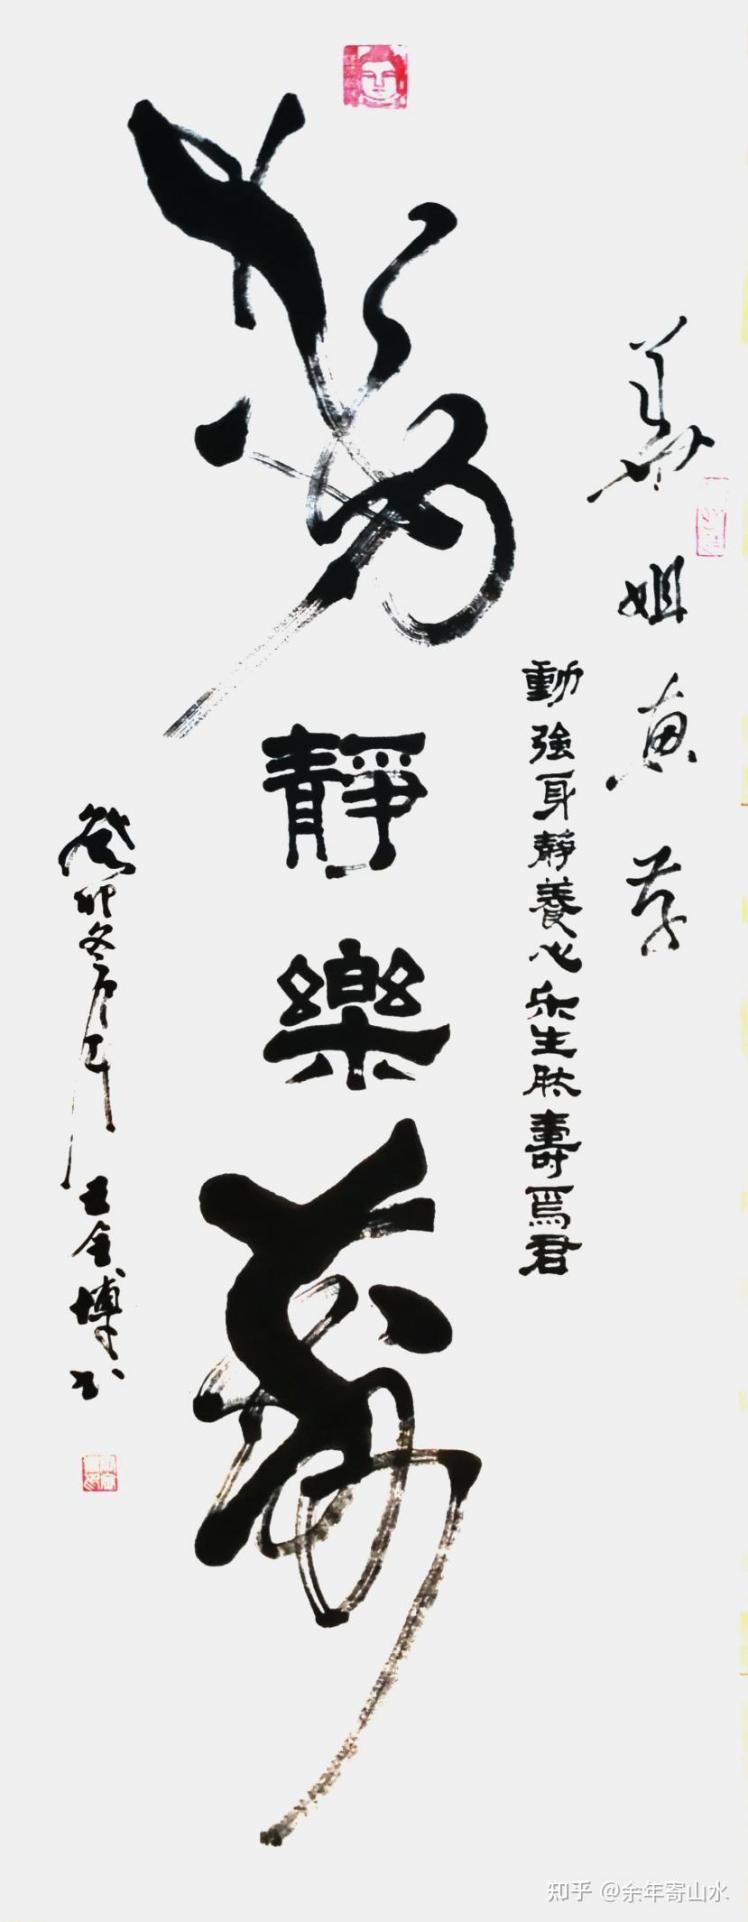 姐惠存
動強身靜養心乐生肽壽焉君
動靜樂壽
癸卯冬月王金博书
知乎 @余年寄山水